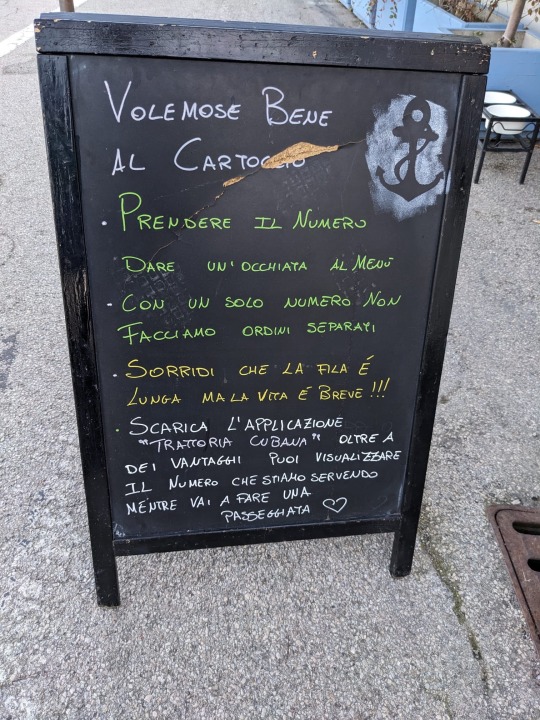 VOLEMOSE BENE
AL CARTOCCIO
• PRENDERE IL NUMERO
DARE UN'OCCHIATA AL MENÙ
• CON UN SOLO NUMERO NON
FACCIAMO ORDINI SEPARATI
• SORRIDI CHE LA FILA É
LUNGA MA LA VITA É BREVE!!!
• SCARICA L'APPLICAZIONE
"TRATTORIA CUBANA" OLTRE A
DEI VANTAGGHI PUOI VISUALIZZARE
IL NUMERO CHE STIAMO SERVENDO
MENTRE VAI A FARE UNA
PASSEGGIATA ♡